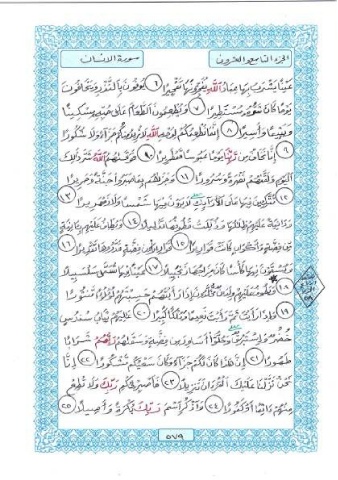 الجزء التاسع والعشرون
سورة الإنسان
عَيْنًا يَشْرَبُ بِهَا عِبَادُ اللَّهِ يُفَجِّرُونَهَا تَفْجِيرًا ٦ يُوفُونَ بِالنَّذْرِ وَيَخَافُونَ
يَوْمًا كَانَ شَرُّهُ مُسْتَطِيرًا ٧ وَيُطْعِمُونَ الطَّعَامَ عَلَى حُبِّهِ مِسْكِينًا
وَيَتِيمًا وَأَسِيرًا ٨ إِنَّمَا نُطْعِمُكُمْ لِوَجْهِ اللَّهِ لَا نُرِيدُ مِنْكُمْ جَزَاءً وَلَا شُكُورًا
٩ إِنَّا نَخَافُ مِنْ رَبِّنَا يَوْمًا عَبُوسًا قَمْطَرِيرًا ١٠ فَوَقَاهُمُ اللَّهُ شَرَّ ذَلِكَ
الْيَوْمِ وَلَقَّاهُمْ نَضْرَةً وَسُرُورًا ١١ وَجَزَاهُمْ بِمَا صَبَرُوا جَنَّةً وَحَرِيرًا
١٢ مُتَّكِئِينَ فِيهَا عَلَى الْأَرَائِكِ لَا يَرَوْنَ فِيهَا شَمْسًا وَلَا زَمْهَرِيرًا ١٣
وَدَانِيَةً عَلَيْهِمْ ظِلَالُهَا وَذُلِّلَتْ قُطُوفُهَا تَذْلِيلًا ١٤ وَيُطَافُ عَلَيْهِمْ بِآنِيَةٍ
مِنْ فِضَّةٍ وَأَكْوَابٍ كَانَتْ قَوَارِيرَا ١٥ قَوَارِيرَ مِنْ فِضَّةٍ قَدَّرُوهَا تَقْدِيرًا ١٦
وَيُسْقَوْنَ فِيهَا كَأْسًا كَانَ مِزَاجُهَا زَنْجَبِيلًا ١٧ عَيْنًا فِيهَا تُسَمَّى سَلْسَبِيلًا
١٨ وَيَطُوفُ عَلَيْهِمْ وِلْدَانٌ مُخَلَّدُونَ إِذَا رَأَيْتَهُمْ حَسِبْتَهُمْ لُؤْلُؤًا مَنْثُورًا
١٩ وَإِذَا رَأَيْتَ ثَمَّ رَأَيْتَ نَعِيمًا وَمُلْكًا كَبِيرًا ٢٠ عَالِيَهُمْ ثِيَابُ سُنْدُسٍ
خُضْرٌ وَإِسْتَبْرَقٌ وَحُلُّوا أَسَاوِرَ مِنْ فِضَّةٍ وَسَقَاهُمْ رَبُّهُمْ شَرَابًا
طَهُورًا ٢١ إِنَّ هَذَا كَانَ لَكُمْ جَزَاءً وَكَانَ سَعْيُكُمْ مَشْكُورًا ٢٢ إِنَّا
نَحْنُ نَزَّلْنَا عَلَيْكَ الْقُرْآنَ تَنْزِيلًا ٢٣ فَاصْبِرْ لِحُكْمِ رَبِّكَ وَلَا تُطِعْ
مِنْهُمْ آثِمًا أَوْ كَفُورًا ٢٤ وَاذْكُرِ اسْمَ رَبِّكَ بُكْرَةً وَأَصِيلًا ٢٥
٥٧٩